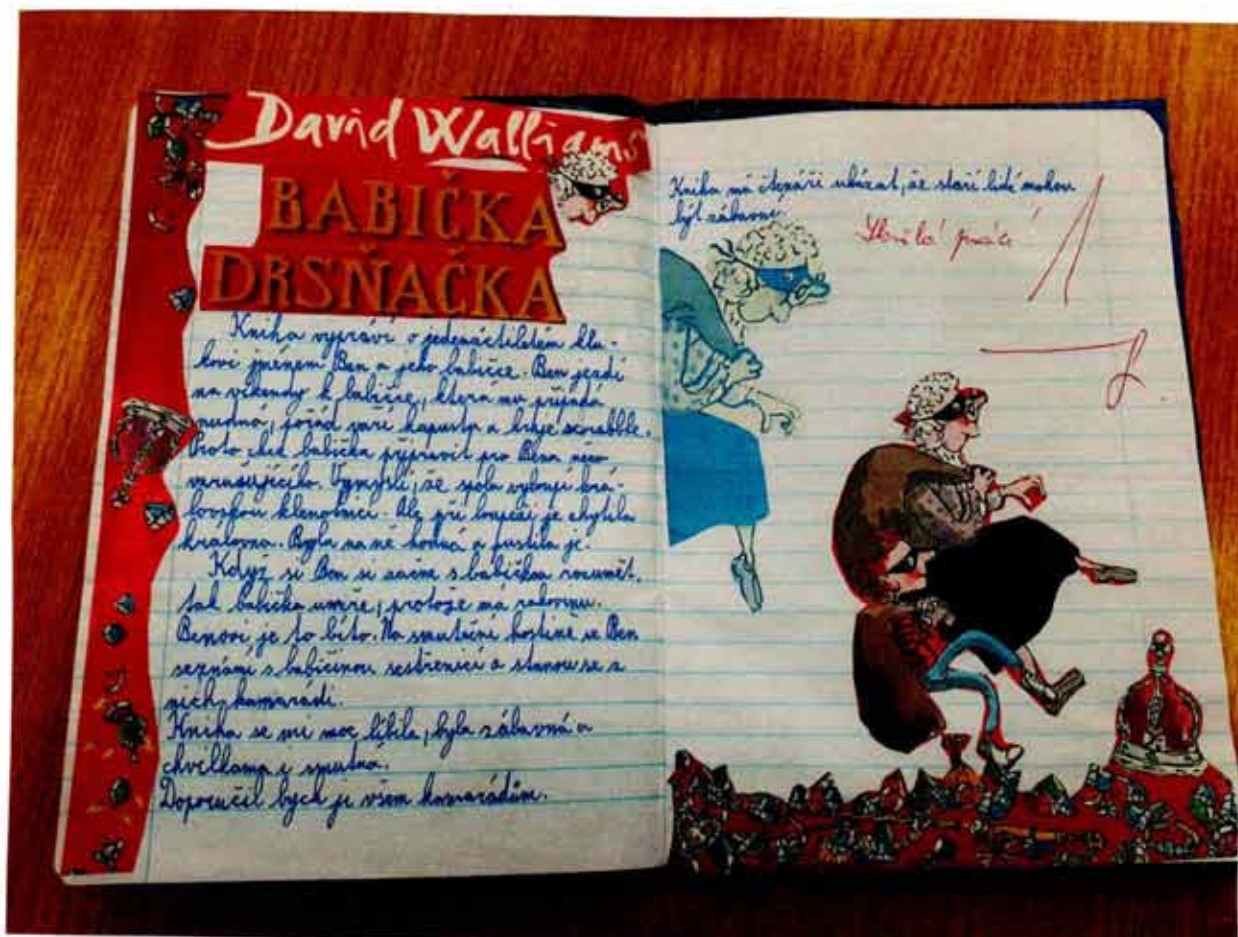 David Walliams
BABIČKA
DRSŇAČKA
Kniha vypráví o jedenáctiletém klu-
kovi jménem Ben a jeho babičce. Ben jezdí
na víkendy k babičce, která mu připadá
nudná, pořád vaří kapustu a hraje scrabble.
Proto chce babička připravit pro Bena něco
vzrušujícího. Vymyslí, že spolu vyloupí krá-
lovskou klenotnici. Ale při loupeži je chytila
královna. Byla na ně hodná a pustila je.
Když si Ben si začne s babičkou rozumět,
tak babička umře, protože má rakovinu.
Benovi je to líto. Na smuteční hostině se Ben
seznámí s babičinou sestřenicí a stanou se z
nich kamarádi.
Kniha se mi moc líbila, byla zábavná a
chvilkama i smutná.
Doporučil bych je všem kamarádům.
Kniha má čtenáři ukázat, že staří lidé mohou
být zábavní.
Skvělá práce
1